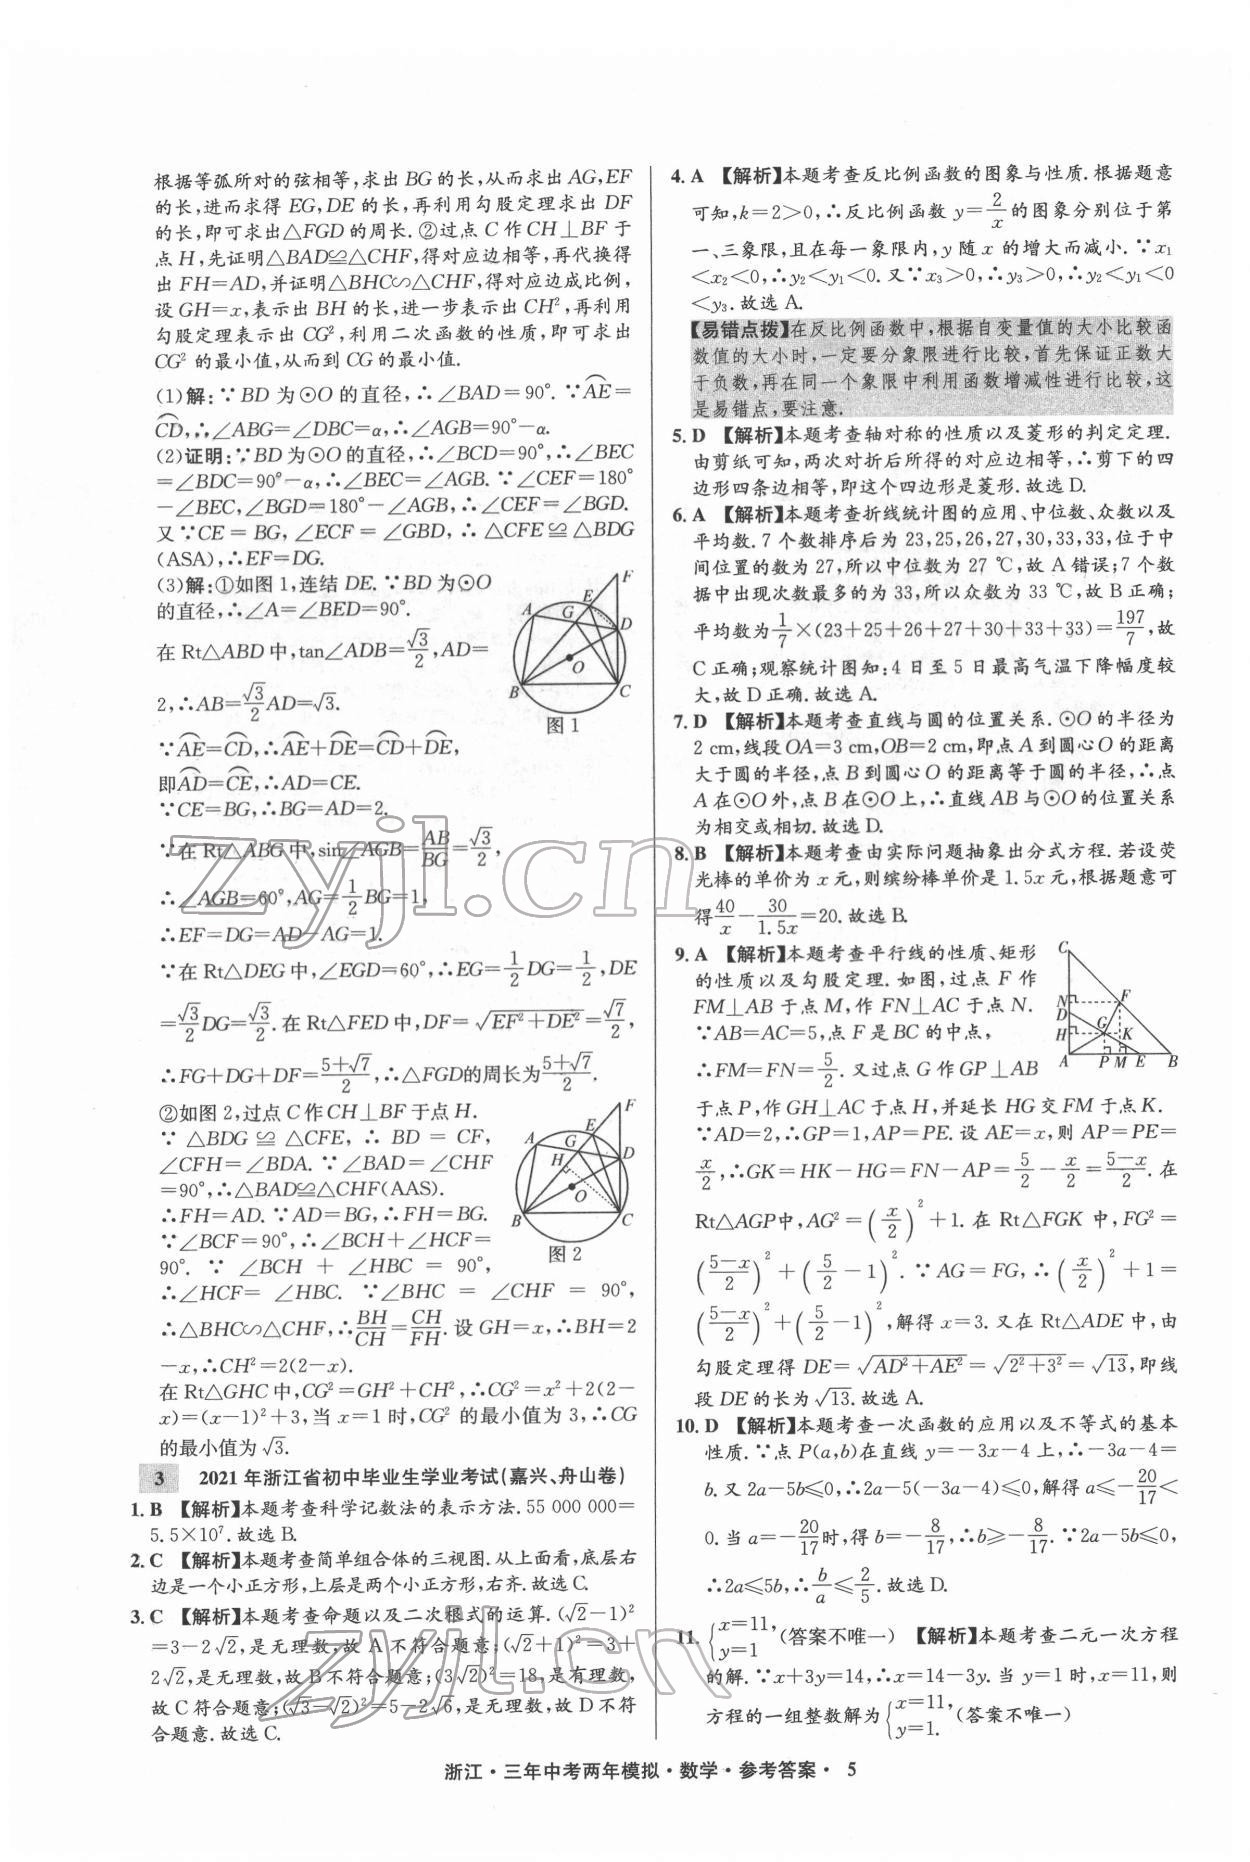 根据等弧所对的弦相等,求出 BG 的长,从而求出 AG,EF
的长,进而求得 EG,DE 的长,再利用勾股定理求出 DF
的长,即可求出△FGD 的周长.②过点 C 作 CH⊥BF 于
点 H,先证明△BAD≌△CHF,得对应边相等,再代换得
出 FH=AD,并证明△BHC∽△CHF,得对应边成比例,
设 GH=x,表示出 BH 的长,进一步表示出 CH²,再利用
勾股定理表示出 CG²,利用二次函数的性质,即可求出
CG² 的最小值,从而得到 CG 的最小值.
(1)解:∵BD 为⊙O 的直径,∴∠BAD=90°.∵⌒AE=
⌒CD,∴∠ABG=∠DBC=α,∴∠AGB=90°-α.
(2)证明:∵BD 为⊙O 的直径,∴∠BCD=90°,∴∠BEC
=∠BDC=90°-α,∴∠BEC=∠AGB.∵∠CEF=180°
-∠BEC,∠BGD=180°-∠AGB,∴∠CEF=∠BGD.
又∵CE=BG,∠ECF=∠GBD,∴△CFE≌△BDG
(ASA),∴EF=DG.
(3)解:①如图 1,连结 DE.∵BD 为⊙O
的直径,∴∠A=∠BED=90°.
在 Rt△ABD 中,tan∠ADB=√3/2,AD=
2,∴AB=√3/2AD=√3.
∵⌒AE=⌒CD,∴⌒AE+⌒DE=⌒CD+⌒DE,
即⌒AD=⌒CE,∴AD=CE.
∵CE=BG,∴BG=AD=2.
∵在 Rt△ABG 中,sin∠AGB=AB/BG=√3/2,
∴∠AGB=60°,AG=1/2BG=1,
∴EF=DG=AD-AG=1.
∵在 Rt△DEG 中,∠EGD=60°,∴EG=1/2DG=1/2,DE
=√3/2DG=√3/2.在 Rt△FED 中,DF=√(EF²+DE²)=√7/2,
∴FG+DG+DF=(5+√7)/2,∴△FGD的周长为(5+√7)/2.
F
E
A
G
D
O
B
C
图 1
②如图 2,过点 C 作 CH⊥BF 于点 H.
∵△BDG≌△CFE,∴BD=CF,
∠CFH=∠BDA.∵∠BAD=∠CHF
=90°,∴△BAD≌△CHF(AAS).
∴FH=AD.∵AD=BG,∴FH=BG.
∵∠BCF=90°,∴∠BCH+∠HCF=
90°.∵∠BCH+∠HBC=90°,
∴∠HCF=∠HBC.∵∠BHC=∠CHF=90°,
∴△BHC∽△CHF,∴BH/CH=CH/FH.设 GH=x,∴BH=2
-x,∴CH²=2(2-x).
在 Rt△GHC 中,CG²=GH²+CH²,∴CG²=x²+2(2-
x)=(x-1)²+3,当 x=1 时,CG² 的最小值为 3,∴CG
的最小值为√3.
F
E
A
G
H
D
O
B
C
图 2
3 2021 年浙江省初中毕业生学业考试(嘉兴、舟山卷)
1. B 【解析】本题考查科学记数法的表示方法.55 000 000=
5.5×10⁷.故选 B.
2. C 【解析】本题考查简单组合体的三视图.从上面看,底层右
边是一个小正方形,上层是两个小正方形,右齐.故选 C.
3. C 【解析】本题考查命题以及二次根式的运算.(√2-1)²
=3-2√2,是无理数,故 A 不符合题意;(√2+1)²=3+
2√2,是无理数,故 B 不符合题意;(3√2)²=18,是有理数,
故 C 符合题意;(√3-√2)²=5-2√6,是无理数,故 D 不符
合题意.故选 C.
4. A 【解析】本题考查反比例函数的图象与性质.根据题意
可知,k=2>0,∴反比例函数 y=2/x的图象分别位于第
一、三象限,且在每一象限内,y 随 x 的增大而减小.∵x₁
<x₂<0,∴y₂<y₁<0.又∵x₃>0,∴y₃>0,∴y₂<y₁<0
<y₃.故选 A.
【易错点拨】在反比例函数中,根据自变量值的大小比较函
数值的大小时,一定要分象限进行比较,首先保证正数大
于负数,再在同一个象限中利用函数增减性进行比较,这
是易错点,要注意.
5. D 【解析】本题考查轴对称的性质以及菱形的判定定理.
由剪纸可知,两次对折后所得的对应边相等,∴剪下的四
边形四条边相等,即这个四边形是菱形.故选 D.
6. A 【解析】本题考查折线统计图的应用、中位数、众数以及
平均数.7 个数排序后为 23,25,26,27,30,33,33,位于中
间位置的数为 27,所以中位数为 27 ℃,故 A 错误;7 个数
据中出现次数最多的为 33,所以众数为 33 ℃,故 B 正确;
平均数为1/7×(23+25+26+27+30+33+33)=197/7,故
C 正确;观察统计图知:4 日至 5 日最高气温下降幅度较
大,故 D 正确.故选 A.
7. D 【解析】本题考查直线与圆的位置关系.⊙O 的半径为
2 cm,线段 OA=3 cm,OB=2 cm,即点 A 到圆心 O 的距离
大于圆的半径,点 B 到圆心 O 的距离等于圆的半径,∴点
A 在⊙O 外,点 B 在⊙O 上,∴直线 AB 与⊙O 的位置关系
为相交或相切.故选 D.
8. B 【解析】本题考查由实际问题抽象出分式方程.若设荧
光棒的单价为 x 元,则缤纷棒单价是 1.5x 元,根据题意可
得40/x-30/1.5x=20.故选 B.
9. A 【解析】本题考查平行线的性质、矩形
的性质以及勾股定理.如图,过点 F 作
FM⊥AB 于点 M,作 FN⊥AC 于点 N.
∵AB=AC=5,点 F 是 BC 的中点,
∴FM=FN=5/2.又过点 G 作 GP⊥AB
于点 P,作 GH⊥AC 于点 H,并延长 HG 交 FM 于点 K.
∵AD=2,∴GP=1,AP=PE.设 AE=x,则 AP=PE=
x/2,∴GK=HK-HG=FN-AP=5/2-x/2=(5-x)/2.在
Rt△AGP中,AG²=(x/2)²+1.在 Rt△FGK 中,FG²=
((5-x)/2)²+(5/2-1)².∵AG=FG,∴(x/2)²+1=
((5-x)/2)²+(5/2-1)²,解得 x=3.又在 Rt△ADE 中,由
勾股定理得 DE=√(AD²+AE²)=√(2²+3²)=√13,即线
段 DE 的长为√13.故选 A.
C
N
F
D
H
G
K
A
P
M
E
B
10. D 【解析】本题考查一次函数的应用以及不等式的基本
性质.∵点 P(a,b)在直线 y=-3x-4 上,∴-3a-4=
b.又 2a-5b≤0,∴2a-5(-3a-4)≤0,解得 a≤-20/17<
0.当 a=-20/17时,得 b=-8/17,∴b≥-8/17.∵2a-5b≤0,
∴2a≤5b,∴b/a≤2/5.故选 D.
11. {x=11, y=1 (答案不唯一) 【解析】本题考查二元一次方程
的解.∵x+3y=14,∴x=14-3y.当 y=1 时,x=11,则
方程的一组整数解为{x=11, y=1.(答案不唯一)
浙江·三年中考两年模拟·数学·参考答案· 5
zyjl.cn
zyjl.cn